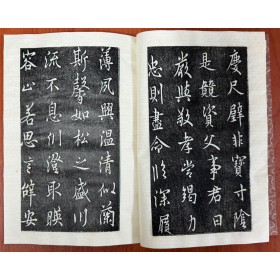 慶尺璧非寶寸陰
是競資父事君曰
嚴與敬孝當竭力
忠則盡命臨深履
薄夙興溫清似蘭
斯馨如松之盛川
流不息渊澄取暎
容止若思言辝安